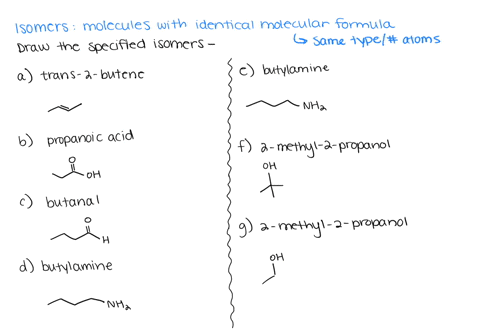 Isomers: molecules with identical molecular formula
Draw the specified isomers –
↳ same type/# atoms
a) trans-2-butene
b) propanoic acid
O
OH
c) butanal
O
H
d) butylamine
NH₂
e) butylamine
NH₂
f) 2-methyl-2-propanol
OH
g) 2-methyl-2-propanol
OH